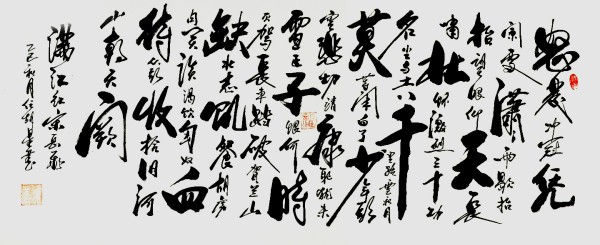 怒髮冲冠凭
闌處瀟雨歇抬
抬望眼仰天長
嘯壮懷激烈三十功
名尘与土八千里路雲和月
莫等闲白了少年头
空悲切靖康耻猶未
雪臣子恨何時
灭驾長車踏破贺兰山
缺壮志飢餐胡虜
肉笑談渴饮匈奴血
待從头收拾旧河
山朝天闕
满江红宋岳飛
乙巳秋月任書